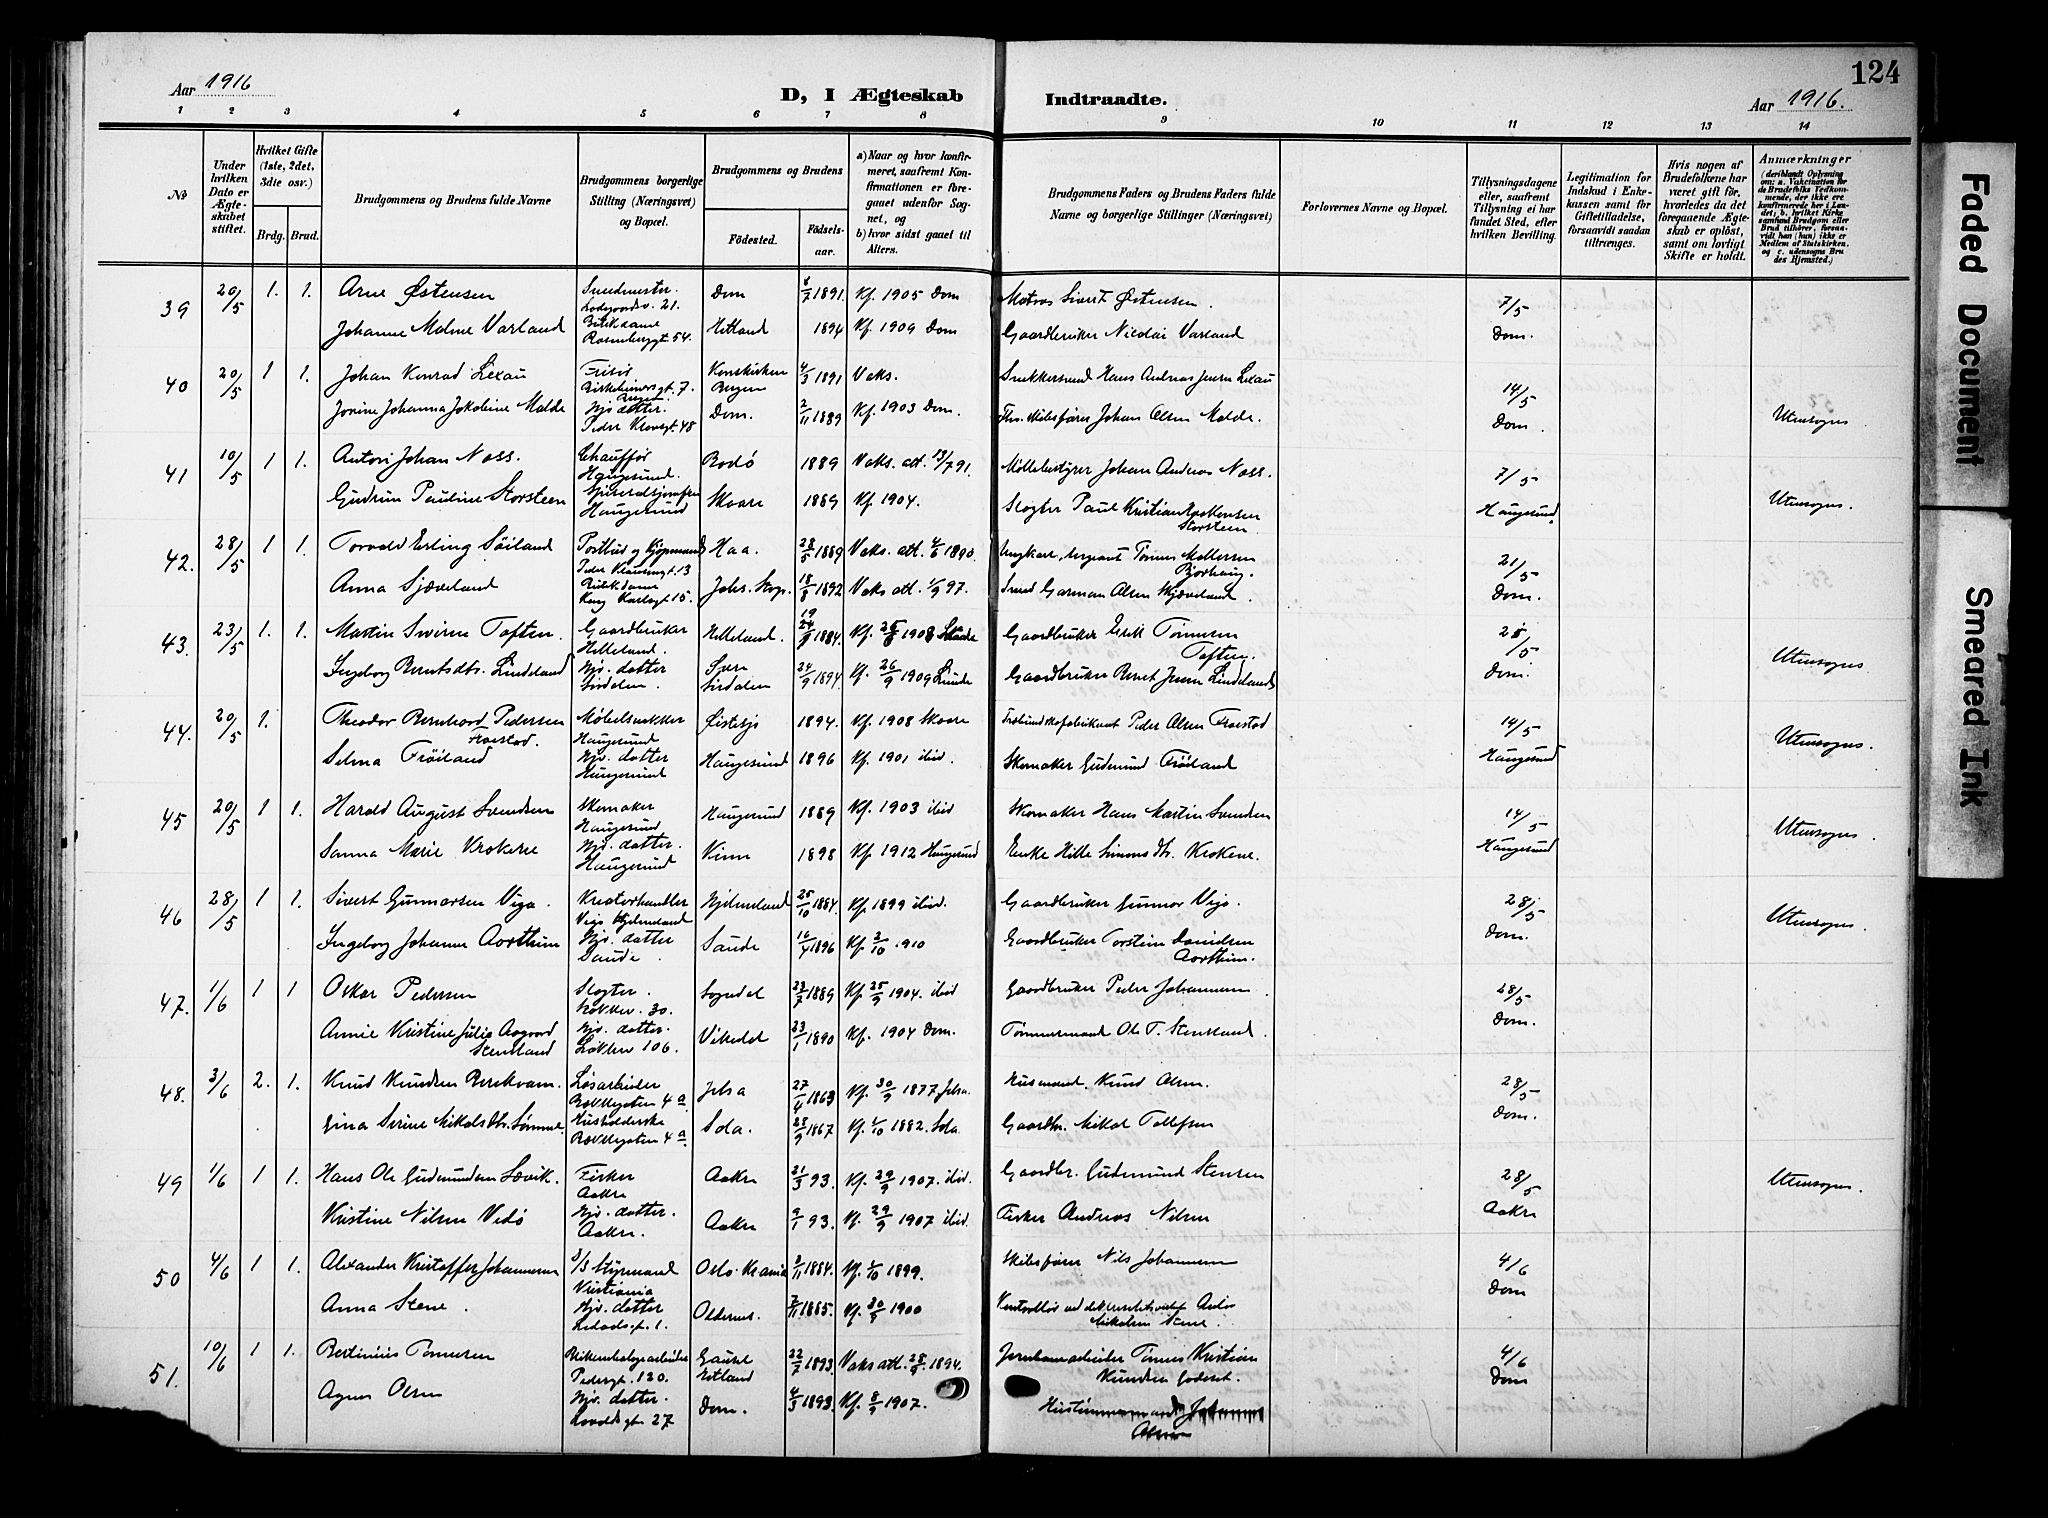 124
Aar 1916
D, I Ægteskab Indtraadte.
Aar 1916.
1 2 3 4 5 6 7 8 9 10 11 12 13 14
No
Under hvilken Dato er Ægteskabet stiftet.
Hvilket Gifte (1ste, 2det, 3die osv.)
Brdg. Brud.
Brudgommens og Brudens fulde Navne
Brudgommens borgerlige Stilling (Næringsvei) og Bopæl.
Brudgommens og Brudens
Fødested. Fødselsaar.
a) Naar og hvor konfirmeret, saafremt Konfirmationen er foregaaet udenfor Sognet, og
b) hvor sidst gaaet til Alters.
Brudgommens Faders og Brudens Faders fulde Navne og borgerlige Stillinger (Næringsvei)
Forlovernes Navne og Bopæl.
Tillysningsdagene eller, saafremt Tillysning ei har fundet Sted, efter hvilken Bevilling.
Legitimation for Indskud i Enkekassen samt for Giftetilladelse, forsaavidt saadan tiltrænges.
Hvis nogen af Brudefolkene har været gift før, hvorledes da det foregaaende Ægteskab er opløst, samt om lovligt Skifte er holdt.
Anmærkninger (deriblandt Oplysning om: a. Vaccination for de Brudefolks Vedkommende, der ikke ere konfirmerede her i Landet; b. hvilket Kirkesamfund Brudgom eller Brud tilhører, forsaavidt han (hun) ikke er Medlem af Statskirken, og c. udensogns Brudes Hjemsted.)
39 20/5 1. 1. Arne Østensen Smedmester 21. Dom 1891. Kf. 1905 Dom Matros Sivert Østensen. 7/5
Johanne Malene Varland Butikdame Rosenberggt. 54. Hetland 1894 Kf. 1909 Dom Gaardbruker Nicolai Varland Dom.
40 20/5 1 1. Johan Konrad Lexau Frisør 7. Korskirken Bergen 4/3 1891 Vaks. Snekkersvend Hans Andreas Jensen Lexau 14/5
Jovine Johanna Jakobine Malde Hjv. datter. Peder Klowsgt. 48 Dom. 2/11 1889 Kf. 1903 Dom. Skibsfører Johan Olsen Malde. Dom. Utensogns
41 10/5 1 1. Anton Johan Nass. Chauffør Haugesund. Bodø 1889 Vaks. att. 13/7 91. Møllebestyrer Johan Andreas Nass. 7/5
Gudrun Pauline Storsteen Haugesund Skaare 1889 Kf. 1904. Slagter Paul Kristian Storsteen Haugesund. Utensogns.
42. 28/5 1 1. Torvald Erling Söiland Postbud og Kjøpmand 13 Haa. 28/5 1889 Vaks. att. 4/6 1890. Ungkarl, sergeant Tønnes Bjorhaug. 21/5
Anna Sjæveland Butikdame Kong Karlsgt. 15. Johs. Sogn. 18/8 1892 Vaks att. 1/9 97. Smed Garman Olsen Skjæveland. Dom.
43. 23/5 1. 1. Martin Severin Toften. Gaardbruker Helleland. Helleland. 1884. Kf. 1908 Gaardbruker Erik Tønnesen Toften. 21/5
Ingeborg Berntsdtr. Lindeland Hjv. datter Sirdalen. Sirdalen 24/9 1894. Kf. 26/9 1909 Lunde Gaardbruker Bernt Jensen Lindeland Dom. Utensogns
44. 20/5 1. Theodor Bernhard Pedersen Møbelsnekker Haugesund Øistesjø 1894. Kf. 1908 Skaare Peder Olsen 14/5
Selma Frøiland Hjv. datter Haugesund Haugesund 1896 Kf. 1901 ibid. Skomaker Gudmund Frøiland Haugesund Utensogns.
45 20/5 1 1. Harald August Svendsen Skomaker Haugesund Haugesund 1889 Kf. 1903 ibid Skomaker Hans Martin Svendsen 14/5
Sanna Marie Krokene Hjv. datter. Haugesund Kinn 1898 Kf. 1912 Haugesund Enke Hille Simonsdtr. Krokene. Haugesund Utensogns
46 28/5 1 1. Sivert Gunnarsen Viga. Kreaturhandler Viga Hjelmeland Hjelmeland 25/10 1884. Kf. 1899 ibid. Gaardbruker Gunnar Viga. 28/5
Ingeborg Johanne Aartheim Hjv. datter Saude. Saude 16/4 1896 Kf. 2/10 1910 Gaardbruker Torstein Danielsen Aartheim. Dom. Utensogns.
47. 1/6 1 1 Oskar Pedersen Slagter. Løkkev. 30. Sogndal 23/7 1889 Kf. 25/9 1904. ibid Gaardbruker Peder Johannesen 28/5
Annie Kristine Julie Aagaard Stensland Hjv. datter. Løkkev 106. Vikedal 23/1 1890 Kf. 1904 Dom. Tømmermand Ole T. Stensland. Dom.
48. 3/6 2. 1. Knud Knudsen Berekvam. Løsarbeider 4 a Jelsa 27/4 1863 Kf. 30/9 1877, Jelsa. Husmand. Knud Olsen. 28/5
Gina Serine Mikalsdtr. Sømme Husholderske 4 a. Sola. 1867 Kf. 1/10 1882. Sola. Gaardbr. Mikal Tollefsen Dom.
49 1/6 1 1. Hans Ole Gudmundsen Sævik. Fisker Aakre Aakre 21/3 93. Kf. 29/9 1907. ibid. Gaardbr. Gudmund Stensen 28/5
Kristine Nilsen Vedø Hjv. datter. Aakre. Aakre 9/1 93. Kf. 29/9 1907 ibid. Fisker Andreas Nilsen Aakre Utensogns.
50 4/6 1 1. Alexander Kristoffer Johannesen S/S Styrmand Kristiania Oslo. Kr.ania 2/11 1884. Kf. 1/10 1899. Skibsfører Nils Johannesen 4/6
Anna Stene. Hjv. datter 1. Oldernes. 7/11 1885. Kf. 30/9 1900 Mikalsen Stene. Dom
51. 10/6 1 1. Bertinius Tønnesen Pedersgt. 120. Gausel Hetland 22/7 1893. Vaks att. 28/9 1894. Jernbanearbeider Tønnes Kristian Knudsen Godeset. 4/6
Agnes Olsen Hjv. datter. 27 Dom. 4/3 1893. Kf. 8/9 1907. Hustømmermand Johannes Olsen Dom
Faded Document
Smeared Ink